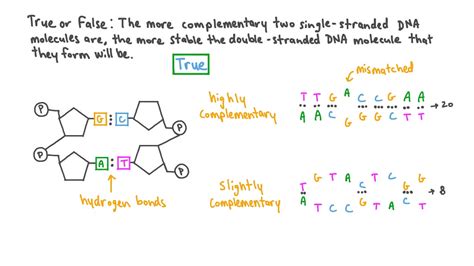 True or False: The more complementary two single-stranded DNA
molecules are, the more stable the double-stranded DNA molecule that
they form will be.
True
mismatched
highly
complementary
T T G A C C G A A → 20
A A C G G G C T T
P
G C
P
P
A T
P
hydrogen bonds
slightly
complementary
G T A C T C G G
T → 8
A
T C C G T A C